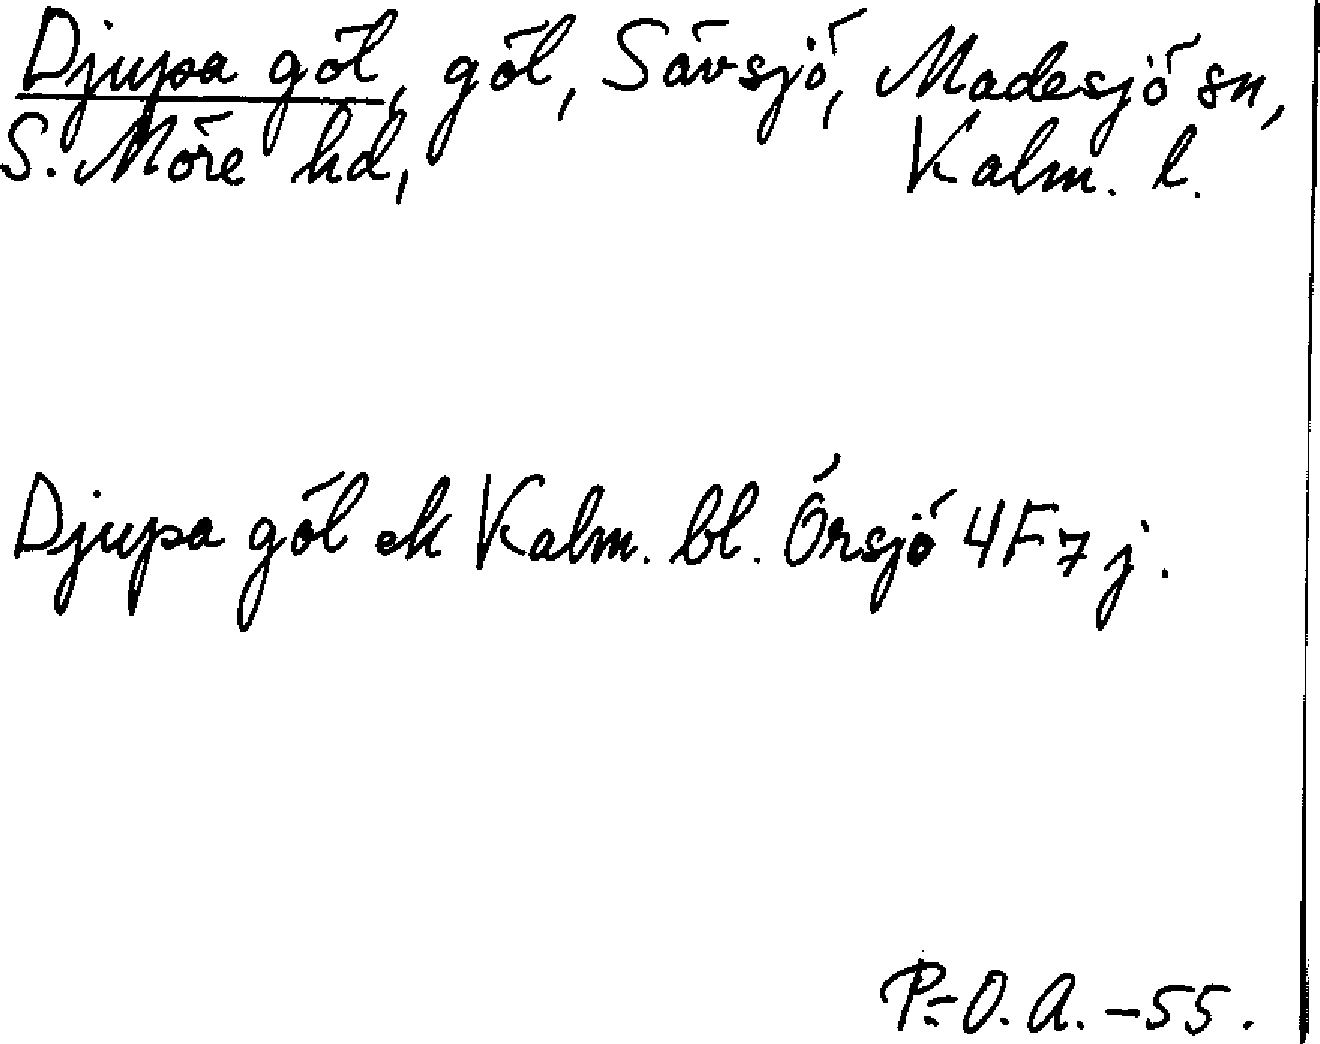 Djupa göl, göl, Sävsjö, Madesjö sn,
S. Möre hd, Kalm. l.
Djupa göl ek Kalm. bl. Örsjö 4F7j.
P.-O.A. -55.